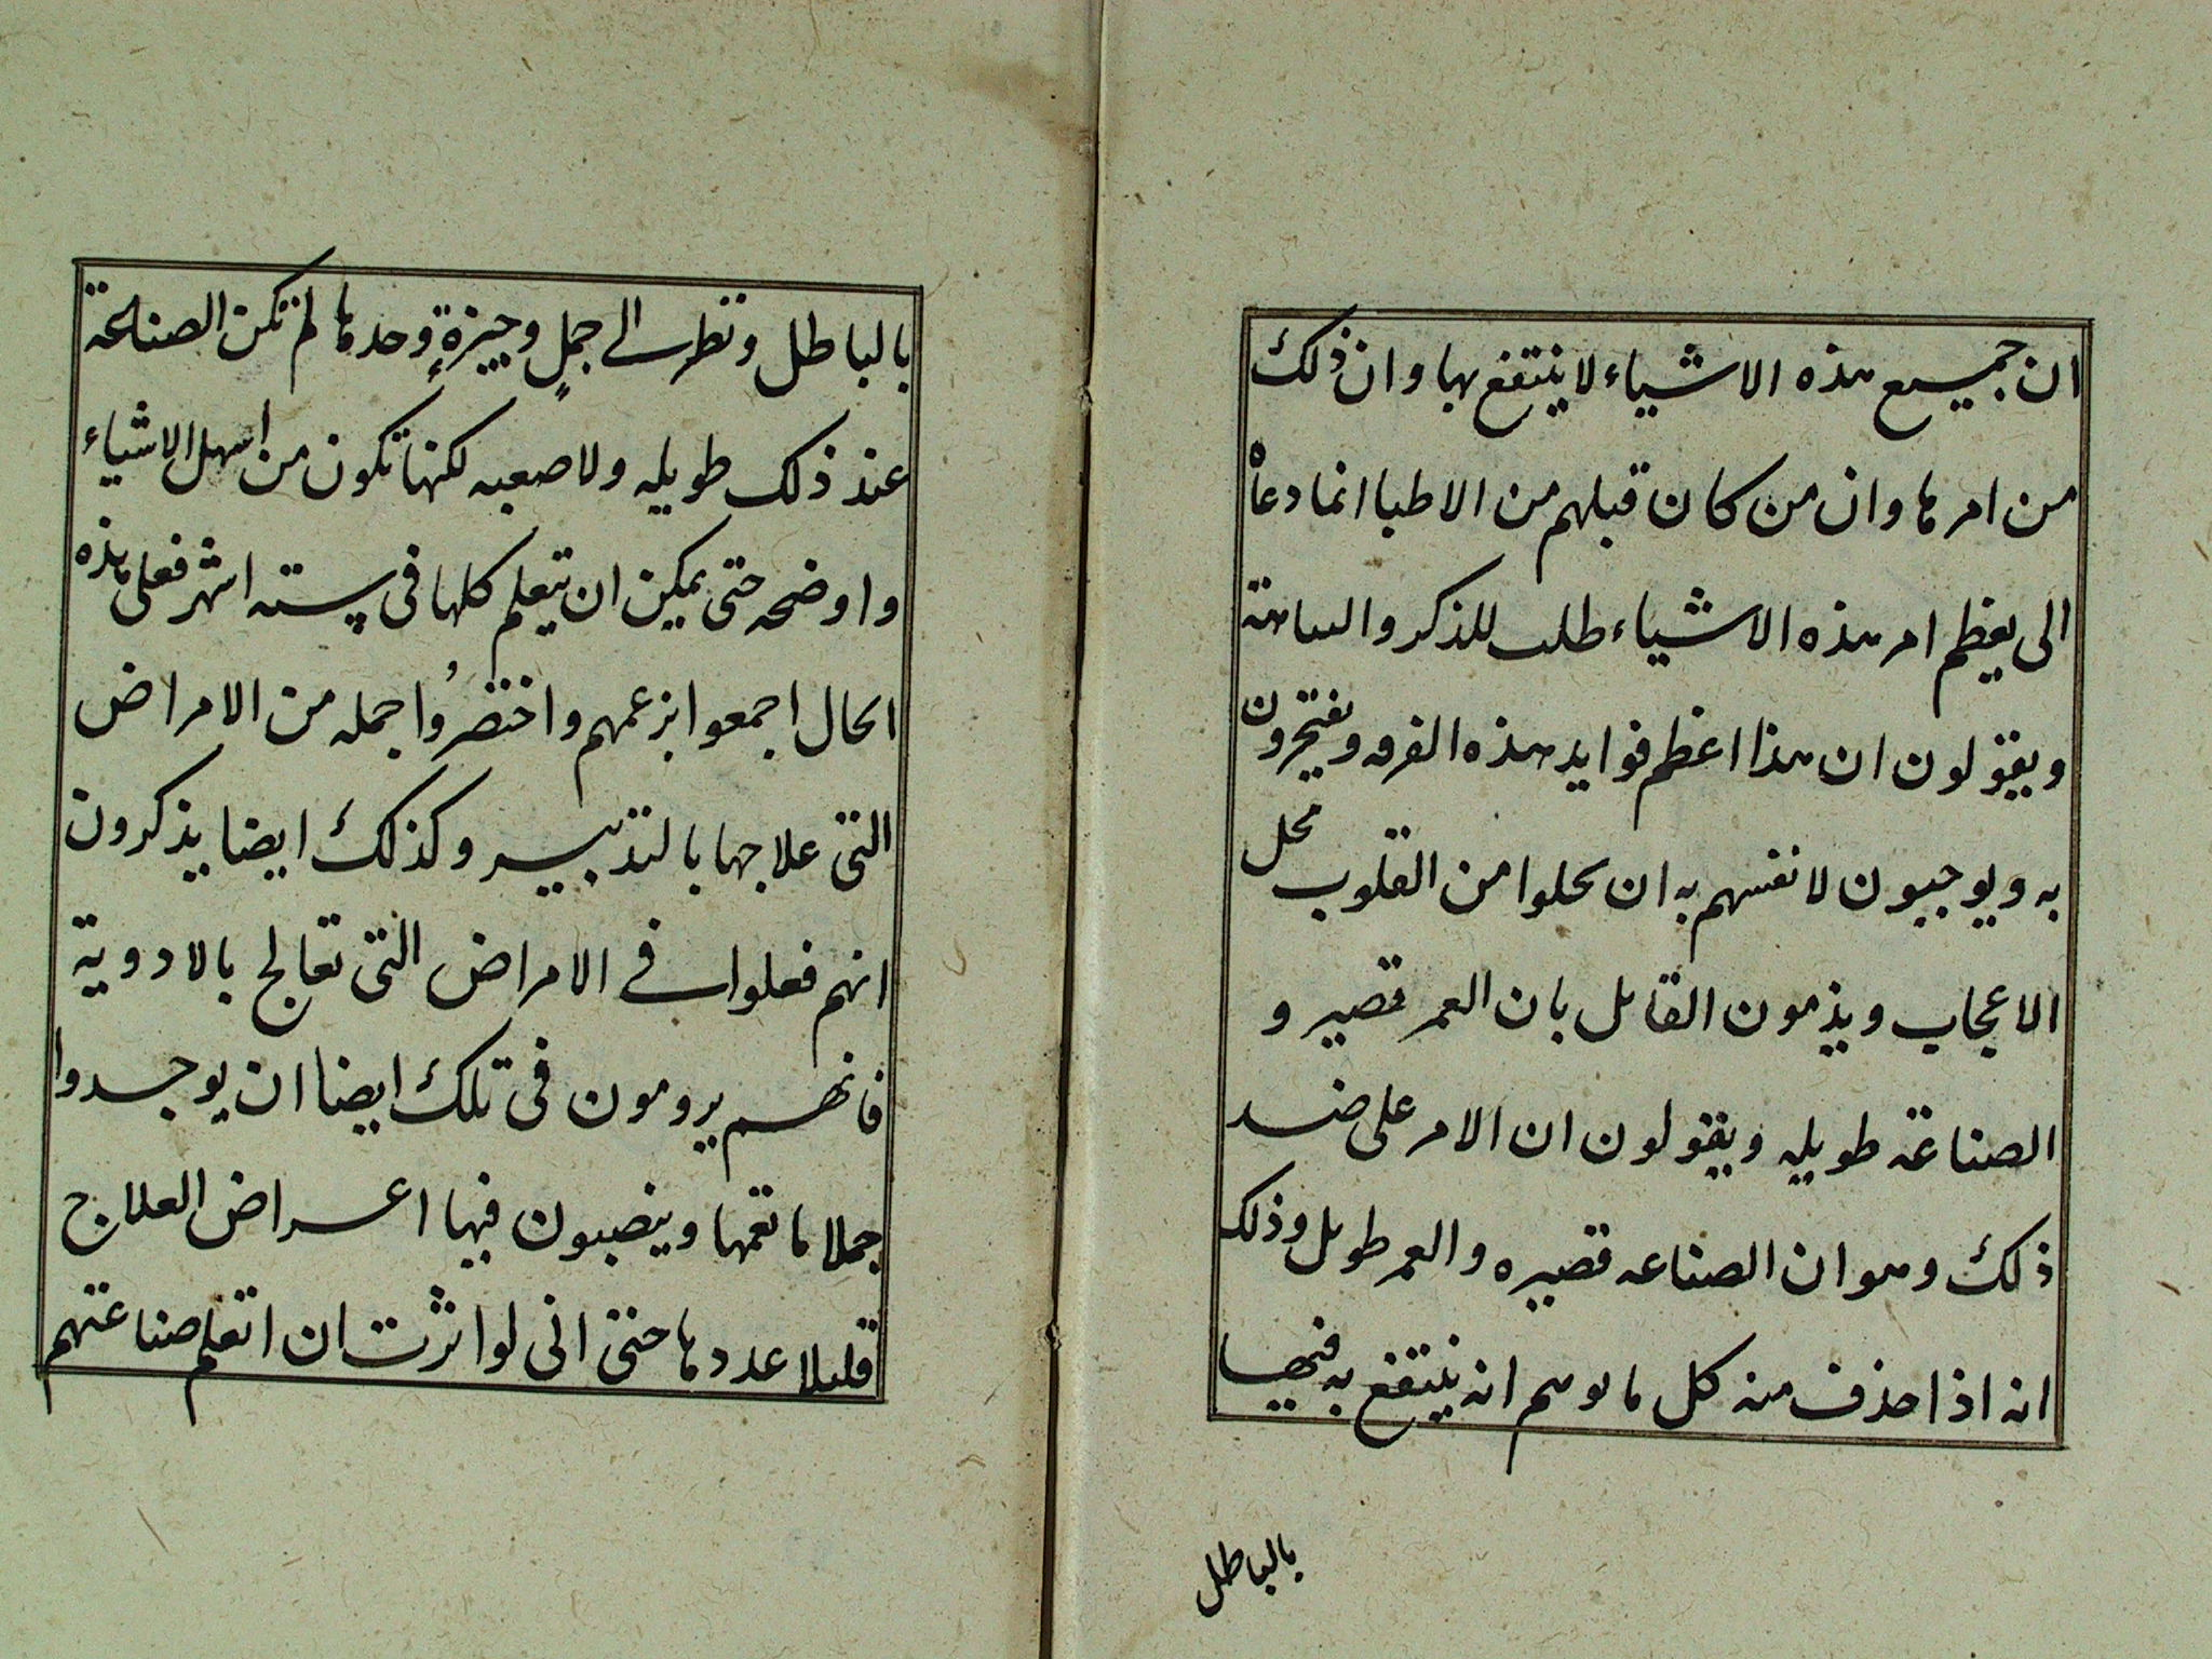 ان جميع هذه الاشياء لا ينتفع بها وان ذلك
من امرها وان من كان قبلهم من الاطبا انما دعاه
الى يعظم امر هذه الاشياء طلب للذكر والنباهة
ويقولون ان هذا اعظم فوايد هذه الفرقه ويفتخرون
به ويوجبون لانفسهم به ان يحلوا من القلوب محل
الاعجاب ويذمون القايل بان العمر قصير و
الصناعة طويله ويقولون ان الامر على ضد
ذلك وهو ان الصناعه قصيره والعمر طويل وذلك
انه اذا حذف منه كل ما توهم انه ينتفع به فيها
بالباطل
بالباطل ونظر الى جمل وجيزة وحدها لم تكن الصناعة
عند ذلك طويله ولا صعبه لكنها تكون من اسهل الاشياء
واوضحه حتى يمكن ان يتعلم كلها فى سته اشهر فعلى هذه
الحال اجمعوا بزعمهم واختصروا جمله من الامراض
التى علاجها بالتدبير وكذلك ايضا يذكرون
انهم فعلوا فى الامراض التى تعالج بالادوية
فانهم يرومون فى تلك ايضا ان يوجدوا
جملا ما تعمها وينصبون فيها اعراض العلاج
قليلا عددها حتى انى لو اثرت ان اتعلم صناعتهم